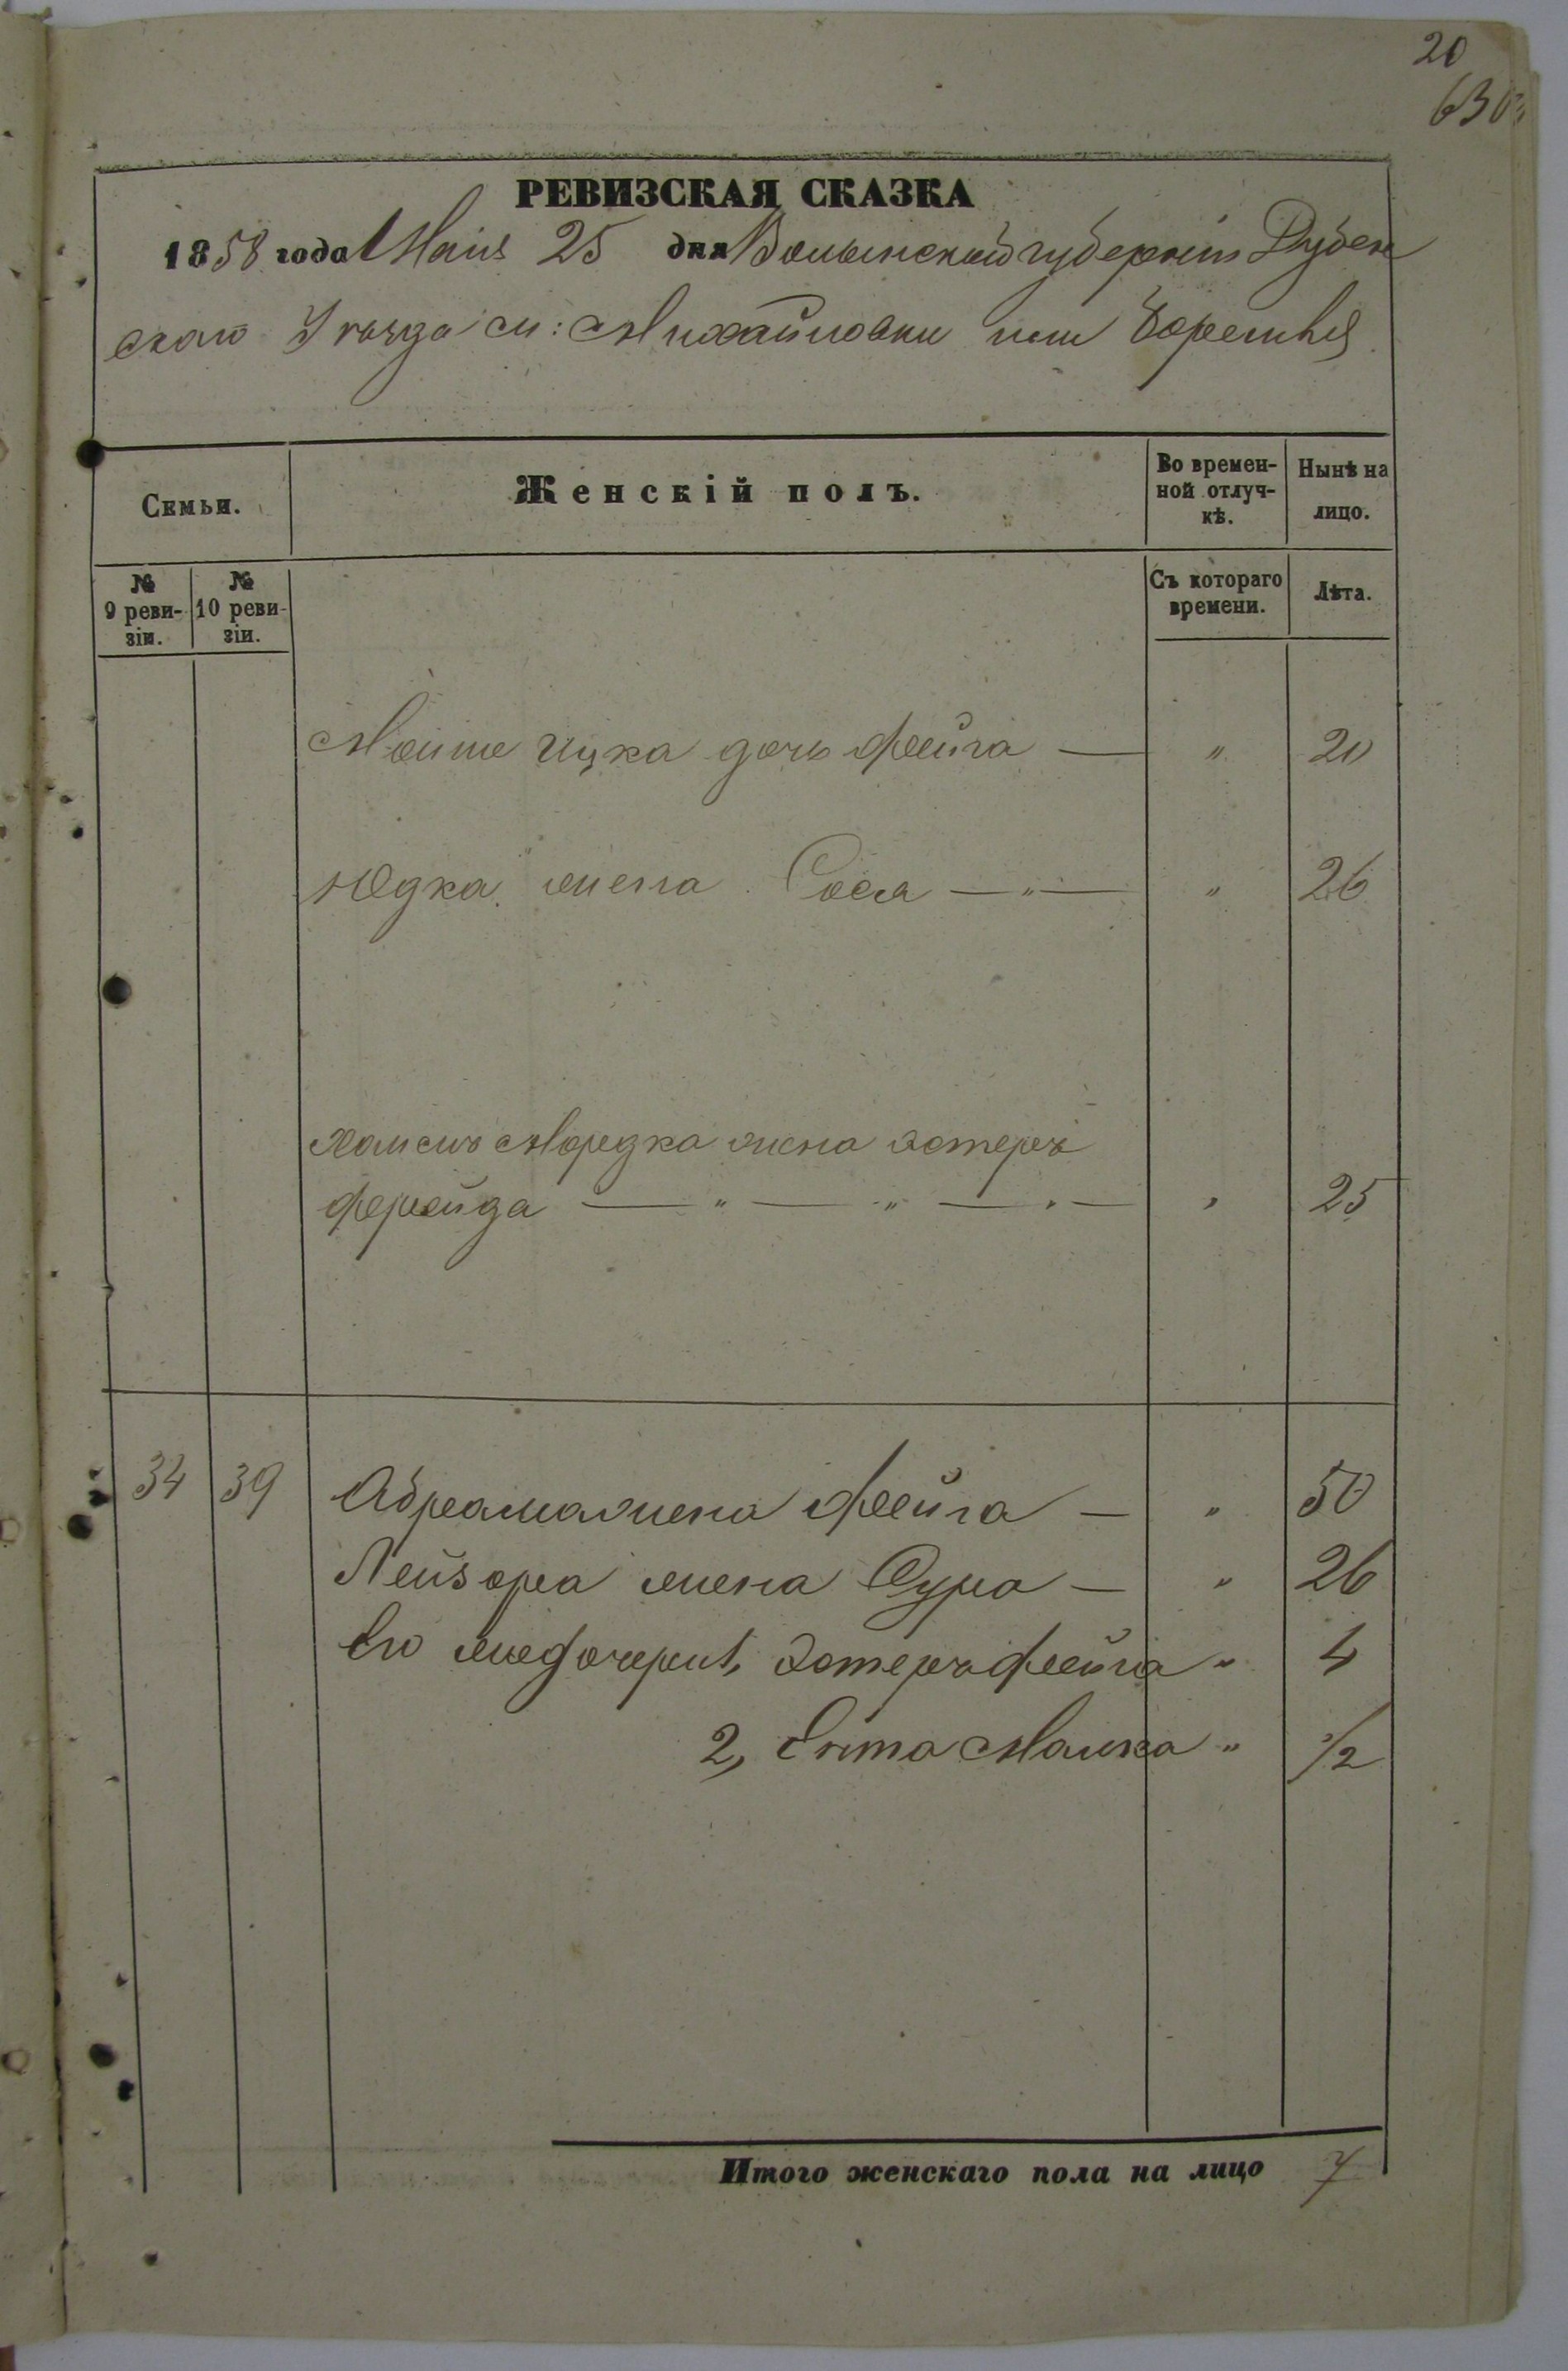 20
630
РЕВИЗСКАЯ СКАЗКА
1858 года Маія 25 дня Волынской губерніи Дубен
скаго Уезда м: Михайловки или
Семьи.
Женскій полъ.
Во времен-
ной отлуч-
кѣ.
Нынѣ на
лицо.
№
9 реви-
зіи.
№
10 реви-
зіи.
Съ котораго
времени.
Лѣта.
Мошше Ицка дочь Фейга — " 20
Юдка жена Сося — " — " 26
Хаимъ Мордка жена Эстеръ
Фрейда — " — " — " — " 25
34 39 Абрама жена Фейга — " 50
Лейзора жена Сура — " 26
Его дочери 1, Эстеръ Фейга " 4
2, Ента Малка " 1/2
Итого женскаго пола на лицо 7